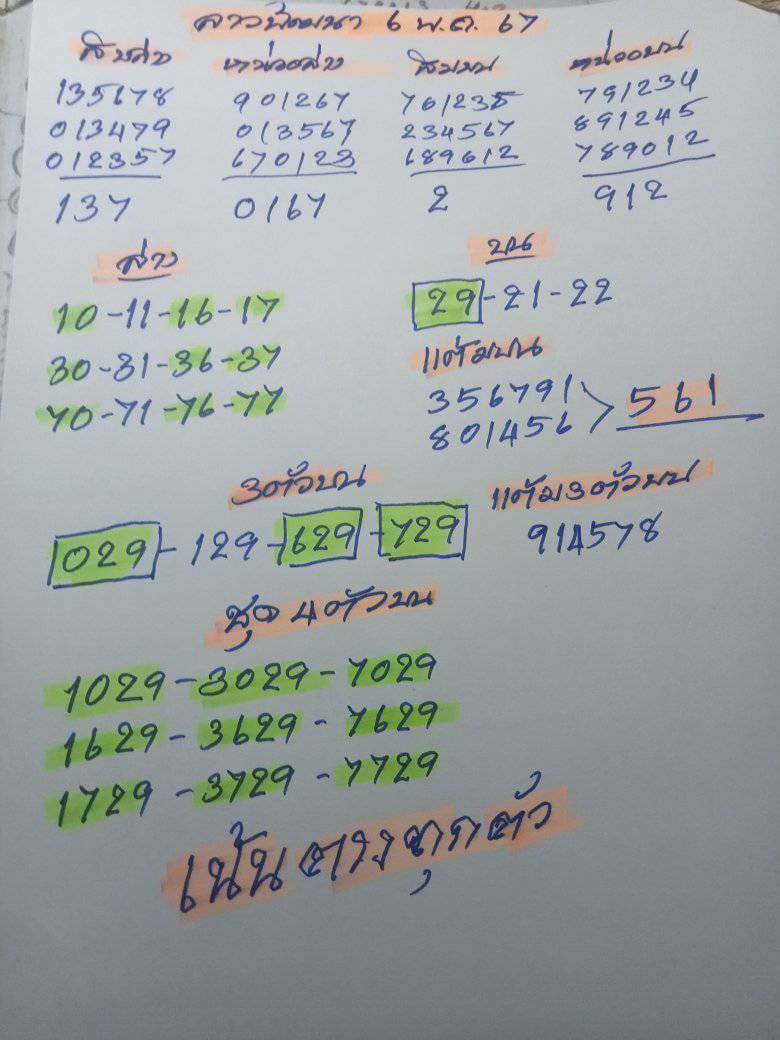 ลาวพัฒนา 6 พ.ค. 67
สิบล่าง หน่วยล่าง สิบบน หน่วยบน
135678 901267 761235 791234
013479 013567 234567 891245
012357 670123 689012 789012
137 0167 2 912
ล่าง บน
10-11-16-17 29-21-22
30-31-36-37 แต้มบน
70-71-76-77 356791
801456 561
3ตัวบน แต้ม3ตัวบน
029-129-629-729 914578
ชุด 4ตัวบน
1029-3029-7029
1629-3629-7629
1729-3729-7729
เน้นตารางทุกตัว